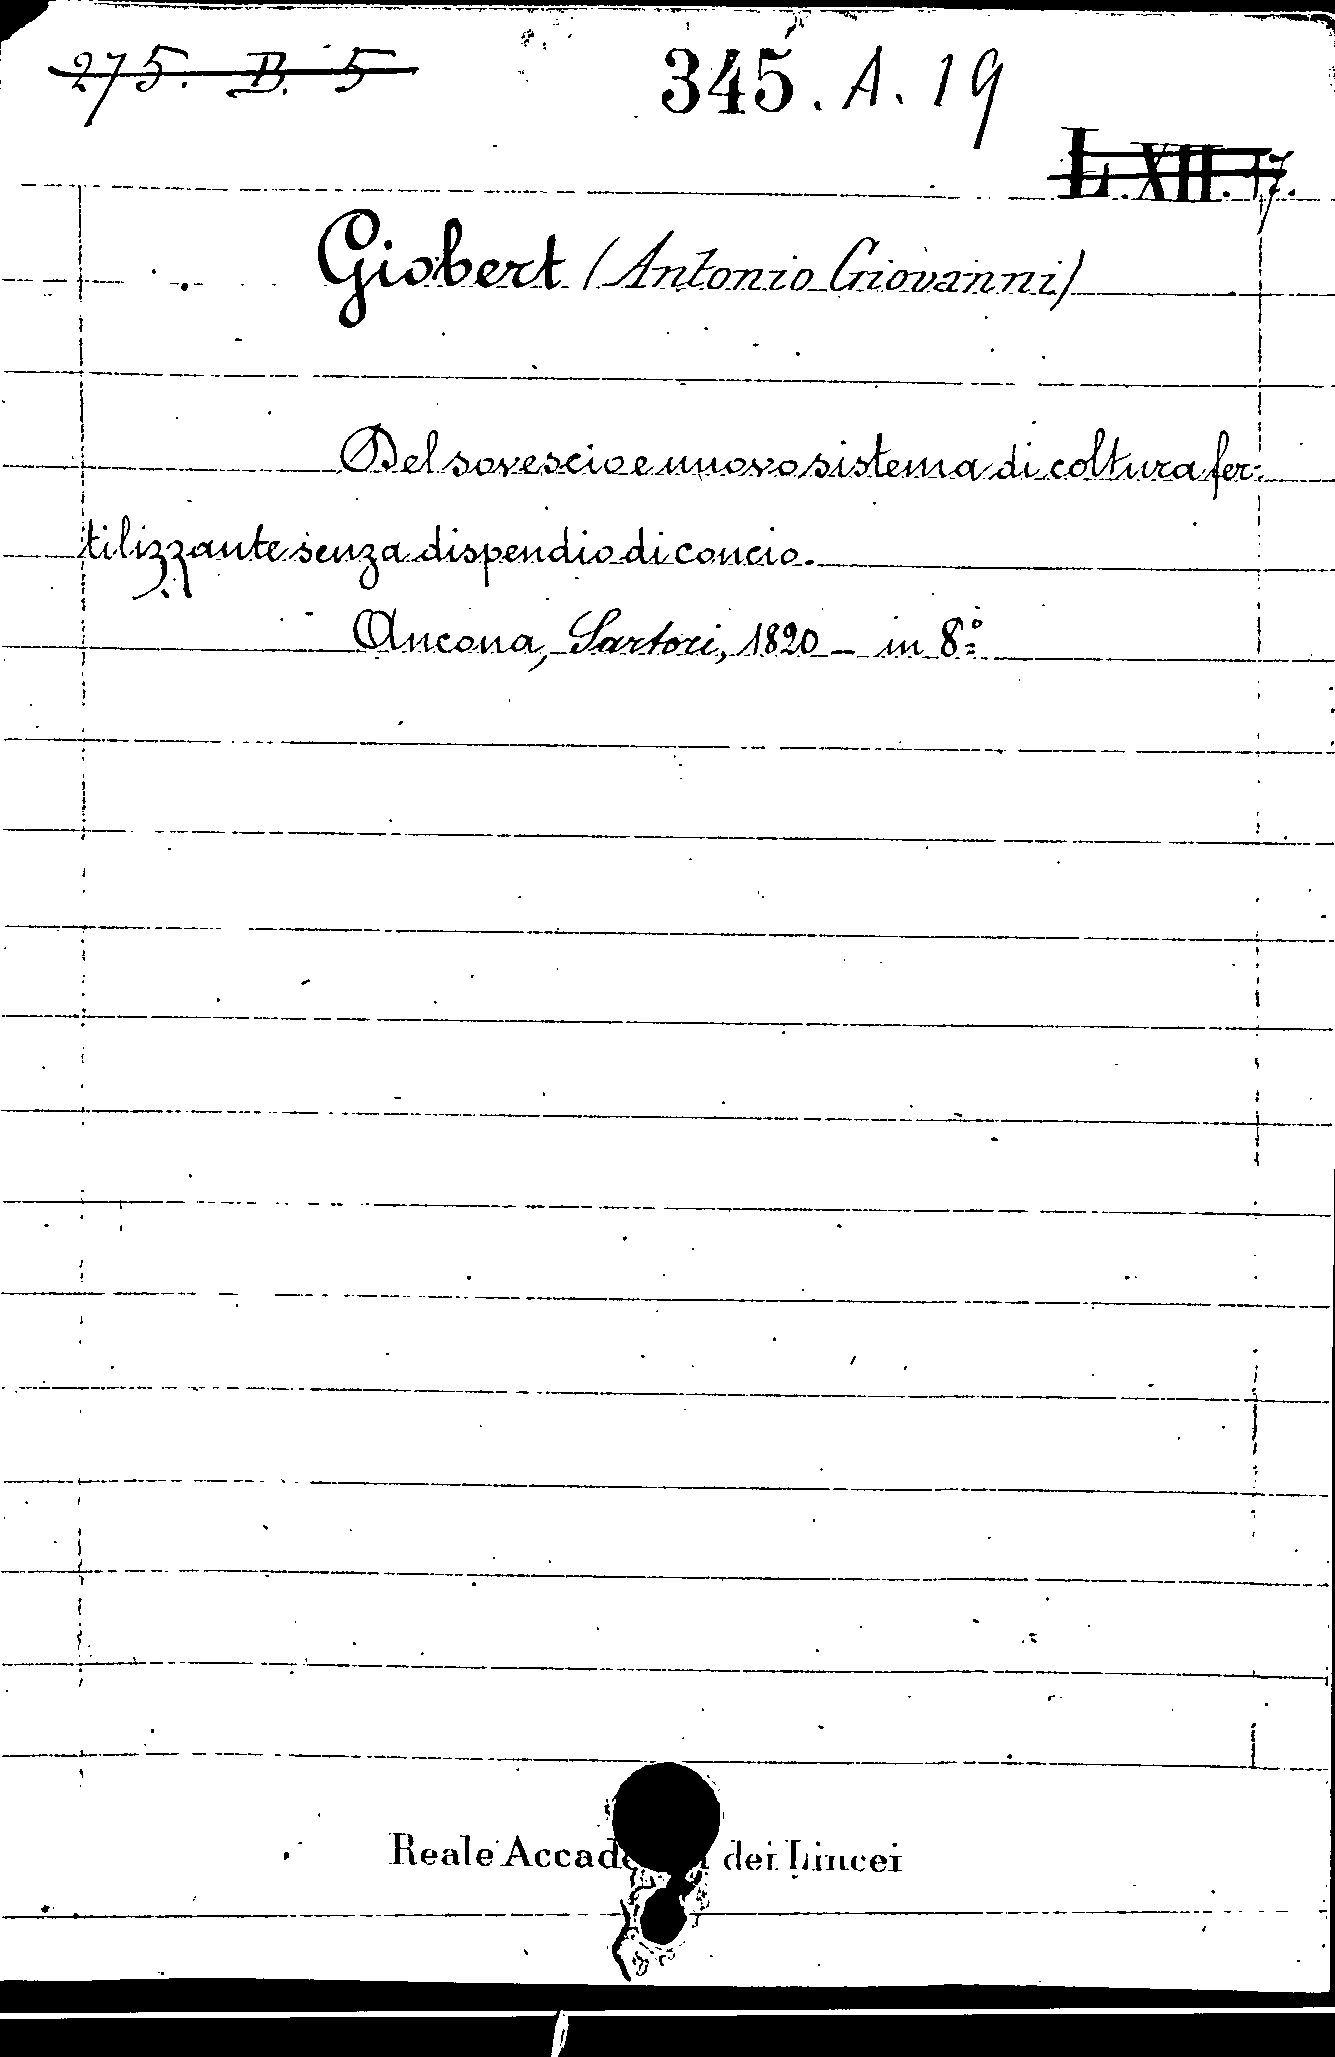 275. B. 5 345. A. 19
L. XII. 17.
Giobert (Antonio Giovanni)
Del sovescio e nuovo sistema di coltura fer-
tilizzante senza dispendio di concio.
Ancona, Sartori, 1820 - in 8º
Reale dei Lincei